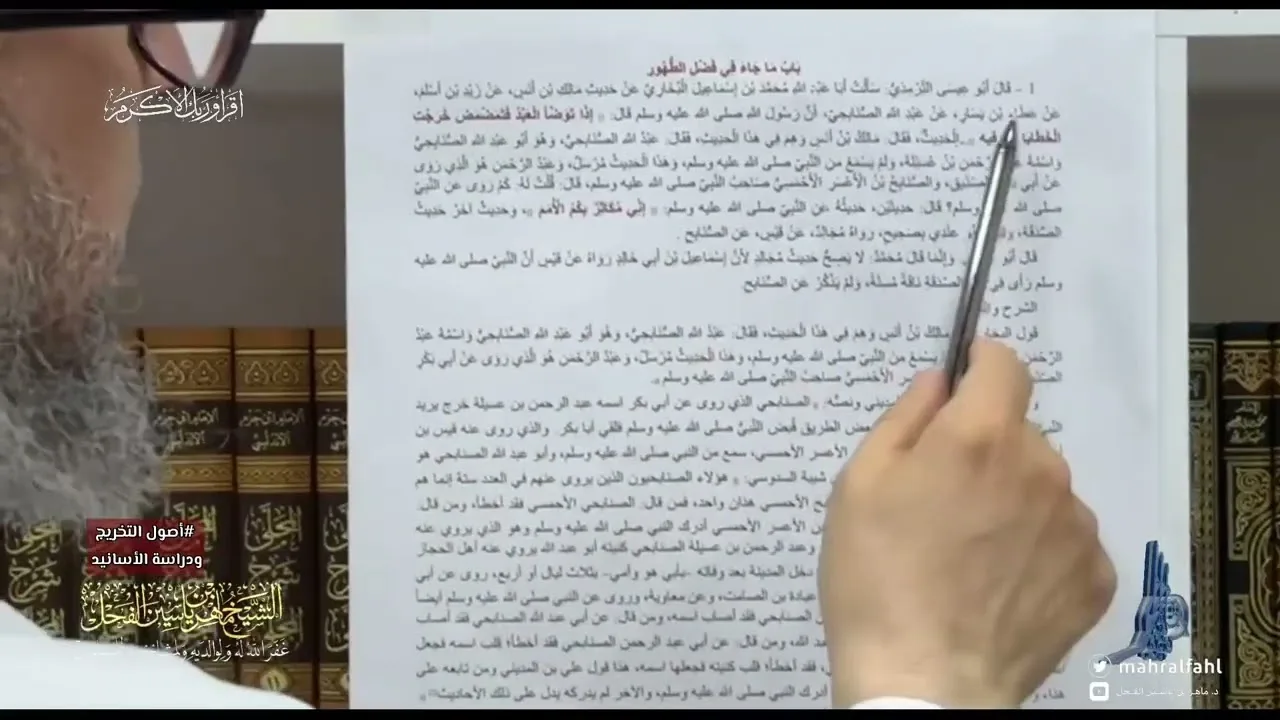 اقرأ وربك الأكرم
بَابُ مَا جَاءَ فِي فَضْلِ الطُّهُورِ
1 - قال أبُو عِيسَى التِّرْمِذِيُّ: سَألْتُ أبَا عَبْدِ اللهِ مُحَمَّدَ بْنَ إِسْمَاعِيلَ الْبُخَارِيَّ عَنْ حَدِيثِ مَالِكِ بْنِ أَنَسٍ، عَنْ زَيْدِ بْنِ أَسْلَمَ،
عَنْ عَطَاءِ بْنِ يَسَارٍ، عَنْ عَبْدِ اللهِ الصُّنَابِحِيِّ، أنَّ رَسُولَ اللهِ صلى الله عليه وسلم قال: « إِذَا تَوَضَّأَ الْعَبْدُ فَتَمَضْمَضَ خَرَجَتِ
الْخَطَايَا فِيهِ »..الْحَدِيثَ، فقال: مَالِكُ بْنُ أَنَسٍ وَهِمَ فِي هَذَا الْحَدِيثِ، فَقَالَ: عَبْدُ اللهِ الصُّنَابِحِيُّ، وهُو أبُو عَبْدِ اللهِ الصُّنَابِحِيُّ
وَاسْمُهُ الرَّحْمَنِ بْنُ عُسَيْلَةَ، وَلَمْ يَسْمَعْ مِنَ النَّبِيِّ صلى الله عليه وسلم، وَهَذَا الْحَدِيثُ مُرْسَلٌ، وَعَبْدُ الرَّحْمَنِ هُوَ الَّذِي رَوَى
عَنْ أَبِي الصِّدِّيقِ، وَالصُّنَابِحُ بْنُ الْأَعْسَرِ الْأَحْمَسِيُّ صَاحِبُ النَّبِيِّ صلى الله عليه وسلم، قَالَ: قُلْتُ لَهُ: كَمْ رَوَى عَنِ النَّبِيِّ
صلى الله وسلم؟ قَالَ: حَدِيثَيْنِ، حَدِيثُهُ عَنِ النَّبِيِّ صلى الله عليه وسلم: « إِنِّي مُكَاثِرٌ بِكُمُ الْأُمَمَ »، وَحَدِيثٌ آخَرُ حَدِيثُ
الصَّدَقَةِ، عِنْدِي بِصَحِيحٍ، رَوَاهُ مُجَالِدٌ، عَنْ قَيْسٍ، عَنِ الصُّنَابِحِ .
قَالَ أَبُو وَإِنَّمَا قَالَ مُحَمَّدٌ: لَا يَصِحُّ حَدِيثُ مُجَالِدٍ لأنَّ إِسْمَاعِيلَ بْنَ أَبِي خَالِدٍ رَوَاهُ عَنْ قَيْسٍ أنَّ النَّبِيَّ صلى الله عليه
وسلم رَأَى فِي الصَّدَقَةِ نَاقَةً مُسِنَّةً، وَلَمْ يَذْكُرْ عَنِ الصُّنَابِحِ.
الشرح
قول مَالِكُ بْنُ أَنَسٍ وَهِمَ فِي هَذَا الْحَدِيثِ، فَقَالَ: عَبْدُ اللهِ الصُّنَابِحِيُّ، وَهُوَ أَبُو عَبْدِ اللهِ الصُّنَابِحِيُّ وَاسْمُهُ عَبْدُ
الرَّحْمَنِ يَسْمَعْ مِنَ النَّبِيِّ صلى الله عليه وسلم، وَهَذَا الْحَدِيثُ مُرْسَلٌ، وَعَبْدُ الرَّحْمَنِ هُوَ الَّذِي رَوَى عَنْ أَبِي بَكْرٍ
الْأَحْمَسِيُّ صَاحِبُ النَّبِيِّ صلى الله عليه وسلم ».
المديني ونصُّه: « الصنابحي الذي روى عن أبي بكر اسمه عبد الرحمن بن عسيلة خرج يريد
بعض الطريق قُبض النَّبيُّ صلى الله عليه وسلم فلقي أبا بكر. والذي روى عنه قيس بن
الأعسر الأحمسي، سمع من النبي صلى الله عليه وسلم، وأبو عبد الله الصنابحي هو
شيبة السدوسي: « هؤلاء الصنابحيون الذين يروى عنهم في العدد ستة إنما هم
الأحمسي هذان واحد، فمن قال: الصنابحي الأحمسي فقد أخطأ، ومن قال:
بن الأعسر الأحمسي أدرك النبي صلى الله عليه وسلم وهو الذي يروي عنه
وعبد الرحمن بن عسيلة الصنابحي كنيته أبو عبد الله يروي عنه أهل الحجاز
دخل المدينة بعد وفاته -بأبي هو وأمي- بثلاث ليال أو أربع، روى عن أبي
عبادة بن الصامت، وعن معاوية، وروى عن النبي صلى الله عليه وسلم أيضاً
الصنابحي فقد أصاب اسمه، ومن قال: عن أبي عبد الله الصنابحي فقد أصاب
الله، ومن قال: عن أبي عبد الرحمن الصنابحي فقد أخطأ؛ قلب اسمه فجعل
فقد أخطأ؛ قلب كنيته فجعلها اسمه، هذا قول علي بن المديني ومن تابعه على
هذا، أدرك النبي صلى الله عليه وسلم، والآخر لم يدركه يدل على ذلك الأحاديث»
#أصول التخريج
ودراسة الأسانيد
الشيخ ماهر ياسين الفحل
غفر الله له ولوالديه
mahralfahl
د. ماهر بن ياسين الفحل
المحلى
شرح